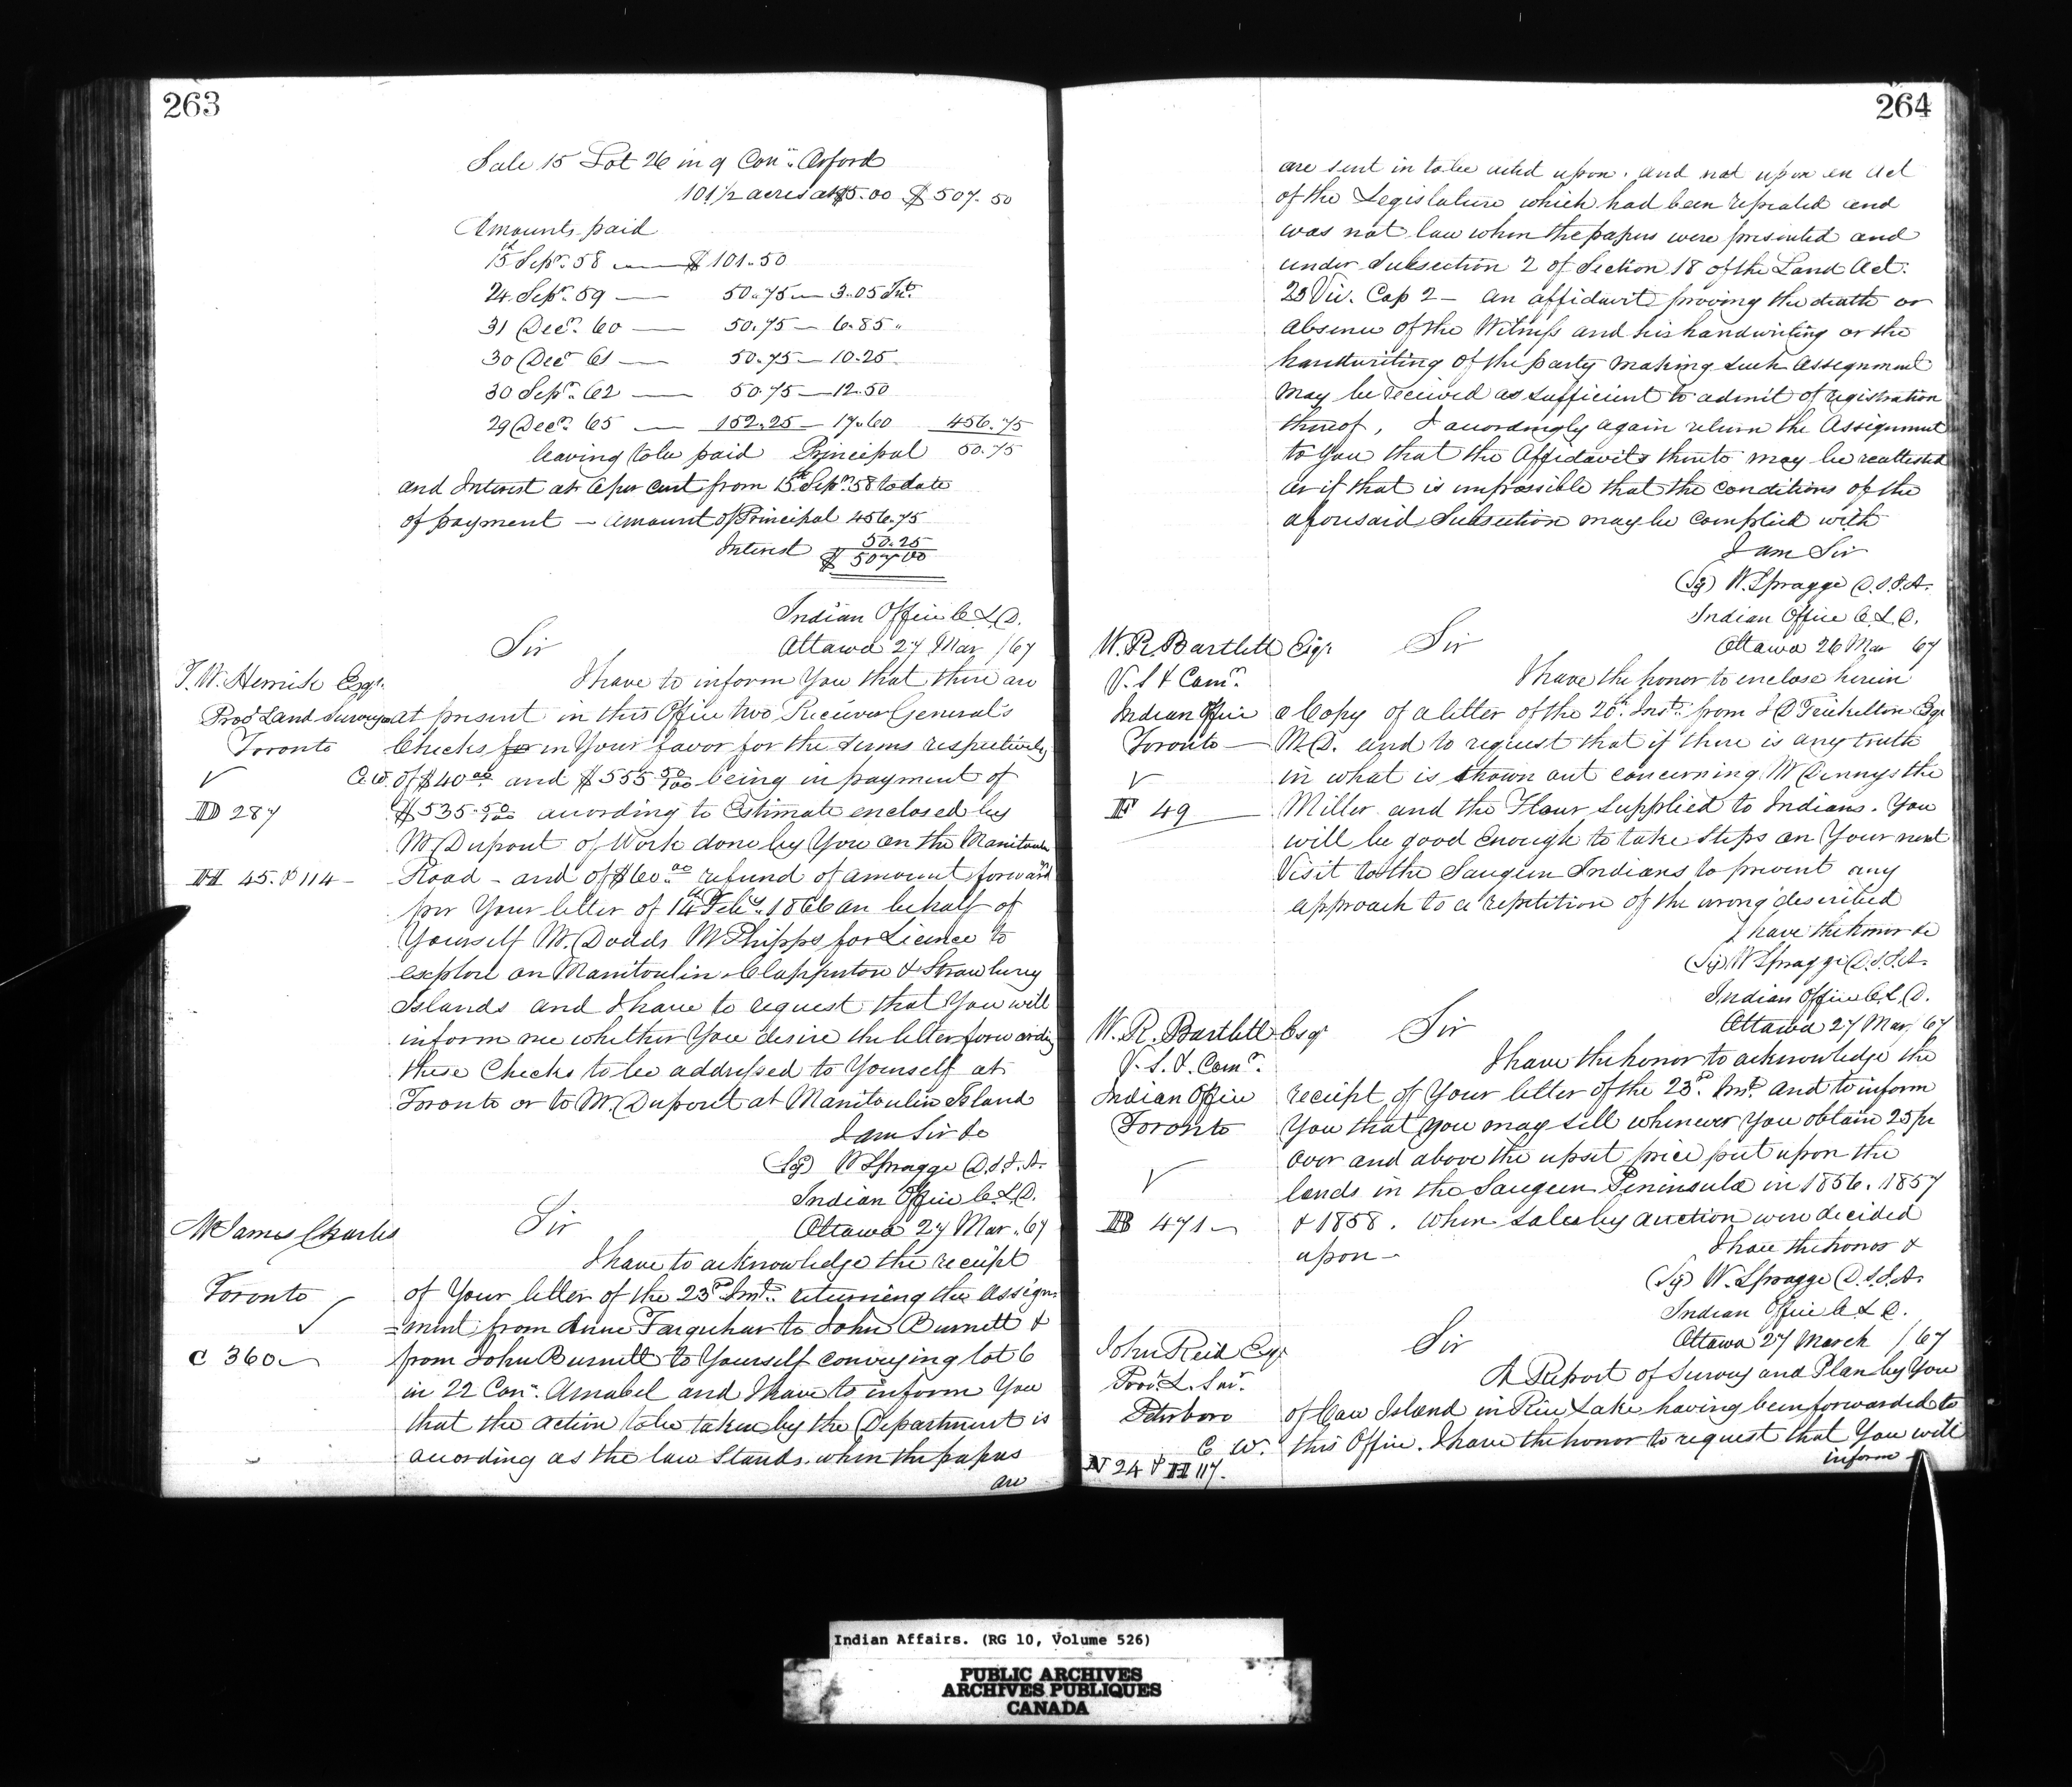 263
Sale 15 Lot 26 in 9 Conn. Orford
101 1/2 acres at $5.00 $507.50
Amounts paid
15th Sepr. 58 — $101.50
24 Sepr. 59 — 50.75 — 3.05 Int.
31 Decr. 60 — 50.75 — 6.85 "
30 Decr 61 — 50.75 — 10.25
30 Sepr. 62 — 50.75 — 12.50
29 Decr. 65 — 152.25 — 17.60 456.75
leaving to be paid Principal 50.75
and Interest at 6 per cent from 15th Sepr. 58 to date
of payment — Amount of Principal 456.75
Interest 50.25
$507.00
Indian Office C.L.D.
Sir Ottawa 27 Mar /67
T. W. Herrick Esqr.
Provl Land Surveyor
Toronto
C.W.
IID 287
HH 45. & 114 —
I have to inform You that there are
at present in this Office two Receiver General's
Checks for in Your favor for the sums respectively
of $40.00 and $555 50/100 being in payment of
$535 50/100 according to Estimate enclosed by
Mr Dupont of Work done by You on the Manitoulin
Road — and of $60.00 refund of amount forward
per Your letter of 14th Feby. 1866 on behalf of
Yourself Mr. Dodds Mr Phipps for Licence to
explore on Manitoulin Clapperton & Strawberry
Islands and I have to request that You will
inform me whether You desire the letter forwarding
these Checks to be addressed to Yourself at
Toronto or to Mr. Dupont at Manitoulin Island
I am Sir &c
(Sg) W Spragge D.S.I.A.
Indian Office C.L.D.
Sir Ottawa 27 Mar. 67
Mr James Charles
Toronto
C 360
I have to acknowledge the receipt
of Your letter of the 23rd Inst. returning the Assign-
=ment from Anne Farquhar to John Burnett &
from John Burnett to Yourself conveying lot 6
in 22 Conn. Amabel and I have to inform You
that the action to be taken by the Department is
according as the law Stands when the papers
are
264
are sent in to be acted upon. and not upon an Act
of the Legislature which had been repealed and
was not law when the papers were presented and
under Subsection 2 of Section 18 of the Land Act.
23 Vic. Cap 2 — an affidavit proving the death or
absence of the Witness and his handwriting or the
handwriting of the party making such Assignment
may be received as sufficient to admit of registration
thereof, I accordingly again return the Assignment
to You that the Affidavits thereto may be reattested
or if that is impossible that the conditions of the
aforesaid Subsection may be complied with
I am Sir
(Sg) W. Spragge D.S.I.A.
Indian Office C.L.D.
Sir Ottawa 26 Mar 67
W. R. Bartlett Esqr
V. S & Comr.
Indian Office
Toronto —
F 49
I have the honor to enclose herein
a Copy of a letter of the 20th. Inst. from Esqr
M.D. and to request that if there is any truth
in what is thrown out concerning Mr Dennys the
Miller and the Flour Supplied to Indians. You
will be good enough to take Steps on Your next
Visit to the Saugeen Indians to prevent any
approach to a repetition of the wrong described
I have the honor &c
(Sg) W Spragge D.S.I.A.
Indian Office C.L.D.
Sir Ottawa 27 Mar/67
W. R. Bartlett Esqr
V. S. & Comr.
Indian Office
Toronto
B 471 —
I have the honor to acknowledge the
receipt of Your letter of the 23rd. Inst. and to inform
You that you may sell whenever You obtain 25 pr
over and above the upset price put upon the
lands in the Saugeen Peninsula in 1856. 1857
& 1858. When Sales by auction were decided
upon —
I have the honor &
(Sg) W. Spragge D.S.I.A.
Indian Office C.L.D.
Sir Ottawa 27 March /67
John Reid Esqr
Provl. L. Sur.
Peterboro
C W.
N 24 & HH 117.
A Report of Survey and Plan by You
of Cow Island in Rice Lake having been forwarded to
this Office. I have the honor to request that You will
inform
Indian Affairs. (RG 10, Volume 526)
PUBLIC ARCHIVES
ARCHIVES PUBLIQUES
CANADA